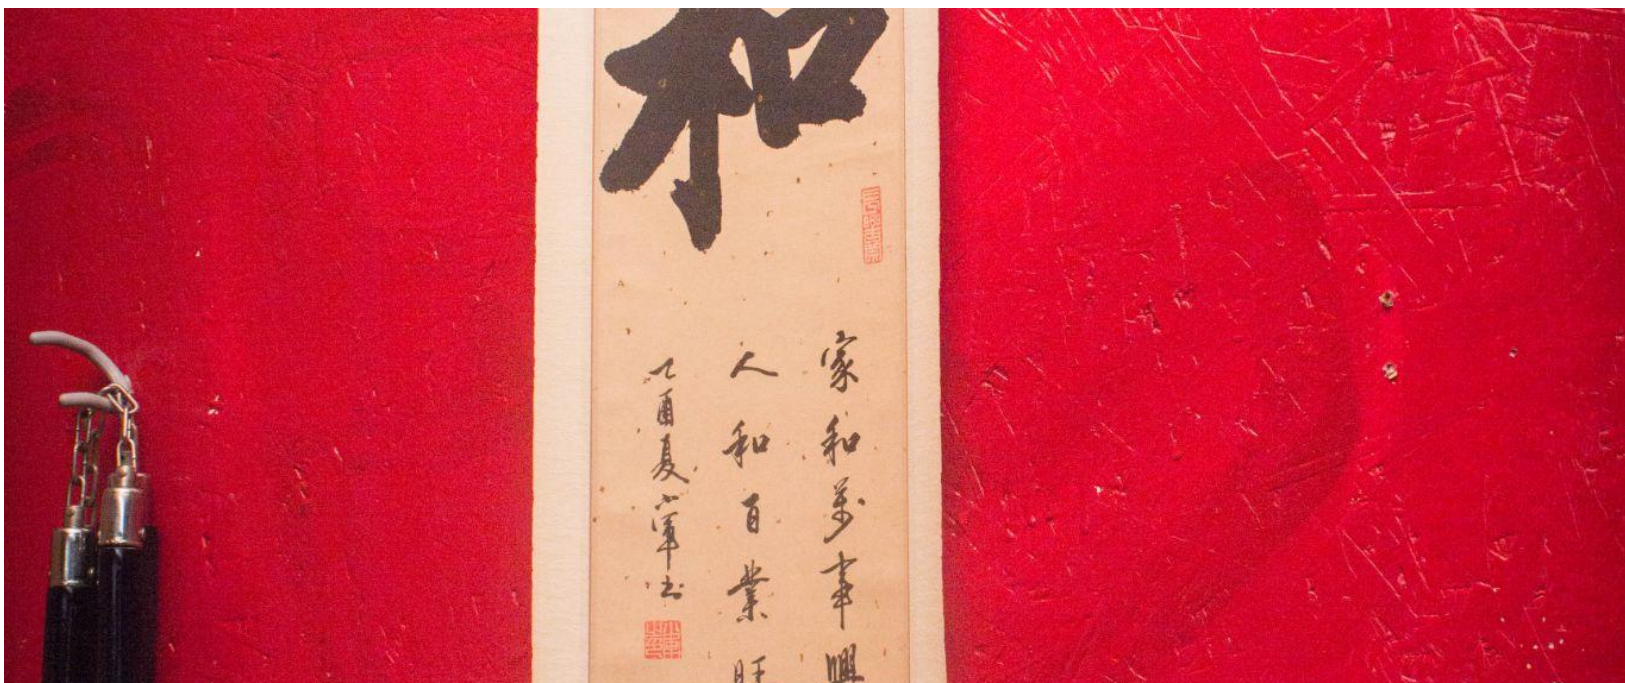 和
家和萬事興
人和百業旺
乙酉夏小軍书